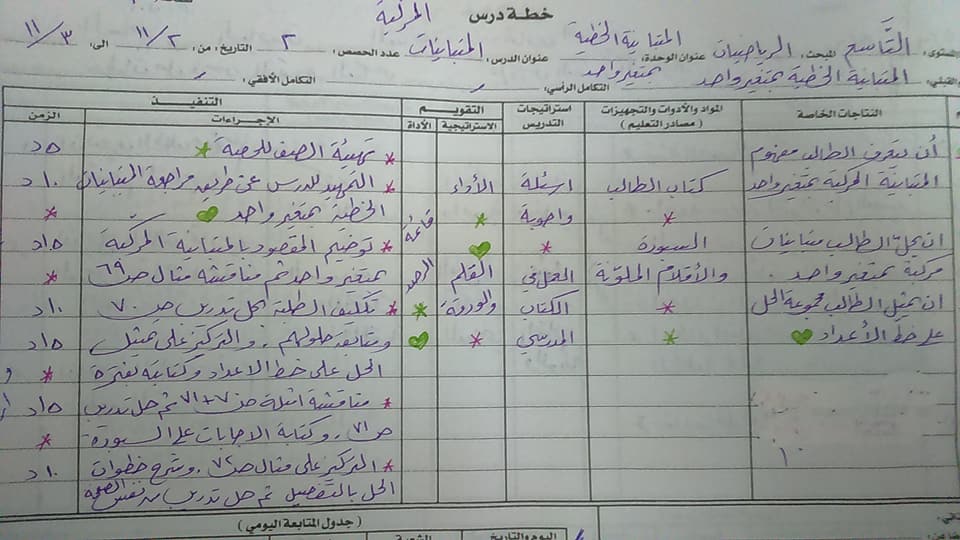 خطة درس
المركبة
المستوى: التاسع المبحث: الرياضيات عنوان الوحدة: المتباينة الخطية بمتغير واحد عنوان الدرس: المتباينات عدد الحصص: ٢ التاريخ: من: ١١/٢ الى: ١١/٣
القبلي: المتباينة الخطية بمتغير واحد التكامل الرأسي: التكامل الأفقي:
النتاجات الخاصة
المواد والأدوات والتجهيزات (مصادر التعليم)
استراتيجيات التدريس
التقويم
الاستراتيجية
الأداة
التنفيذ
الإجراءات
الزمن
أن يتعرف الطالب مفهوم
المتباينة المركبة بمتغير واحد
ان يحل الطالب متباينات
مركبة بمتغير واحد.
ان يمثل الطالب مجموعة الحل
على خط الأعداد
كتاب الطالب
السبورة
والأقلام الملونة
اسئلة
واجوبة
العمل في
الكتاب
المدرسي
الأداء
القلم
والورقة
قائمة
الرصد
* تهيئة الصف للحصة ٥ د
* التمهيد للدرس عن طريق مراجعة المتباينات ١٠ د
الخطية بمتغير واحد
* توضيح المقصود بالمتباينة المركبة ١٥ د
بمتغير واحد ثم مناقشة مثال ص ٦٩
* تكليف الطلبة لحل تدريب ص ٧٠ ١٠ د
ومتابعة حلولهم. والتركيز على تمثيل ١٥ د
الحل على خط الاعداد وكتابته بفترة
* مناقشة امثلة ص ٧٠+٧١ ثم حل تدريب ١٥ د
ص ٧١. وكتابة الاجابات على السبورة
* التركيز على مثال ص ٧٢. وشرح خطوات ١٠ د
الحل بالتفصيل ثم حل تدريب من نفس الصفحة
(جدول المتابعة اليومي)
اليوم والتاريخ
الشعبة